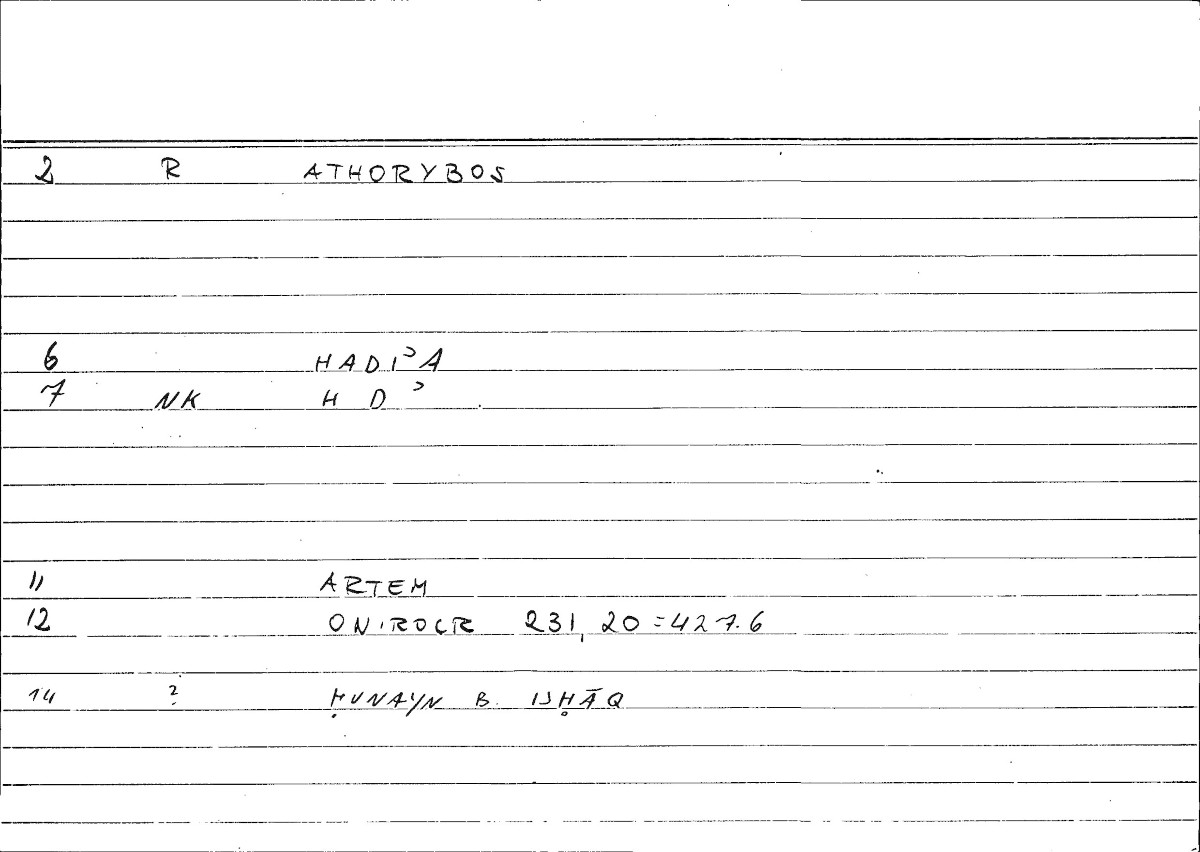 2 R ATHORYBOS
6 HADIʾA
7 NK H D ʾ
11 ARTEM
12 ONIROCR 231, 20 = 427.6
14 ? ḤUNAYN B. ISḤĀQ